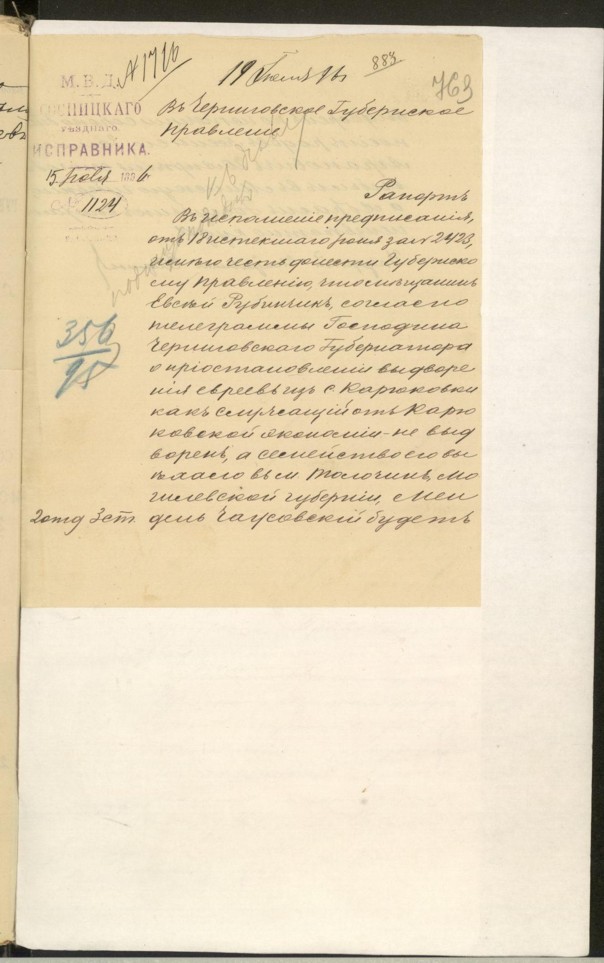 М. В. Д.
СОСНИЦКАГО
УѢЗДНАГО
ИСПРАВНИКА.
15 Юля 1896
№ 1124
№ 1716
19 Июля 96
884
763
Въ Черниговское Губернское
Правленіе
Рапортъ
Въ исполненіе предписанія,
отъ 18 истекшаго Юня за № 2423,
имѣю честь донести Губернско
му Правленію, что мѣщанинъ
Евсѣй Рубинчикъ, согласно
телеграммы Господина
Черниговскаго Губернатора
о пріостановленіи выдворе
нія евреевъ изъ с. Карюковки
какъ служащій отъ Карю
ковской экономіи - не выд
воренъ, а семейство его вы
ѣхало въ м. Толочинъ, Мо
гилевской губерніи, Мен
дель Чаусовскій будетъ
356
95
2 отд 3 ст.